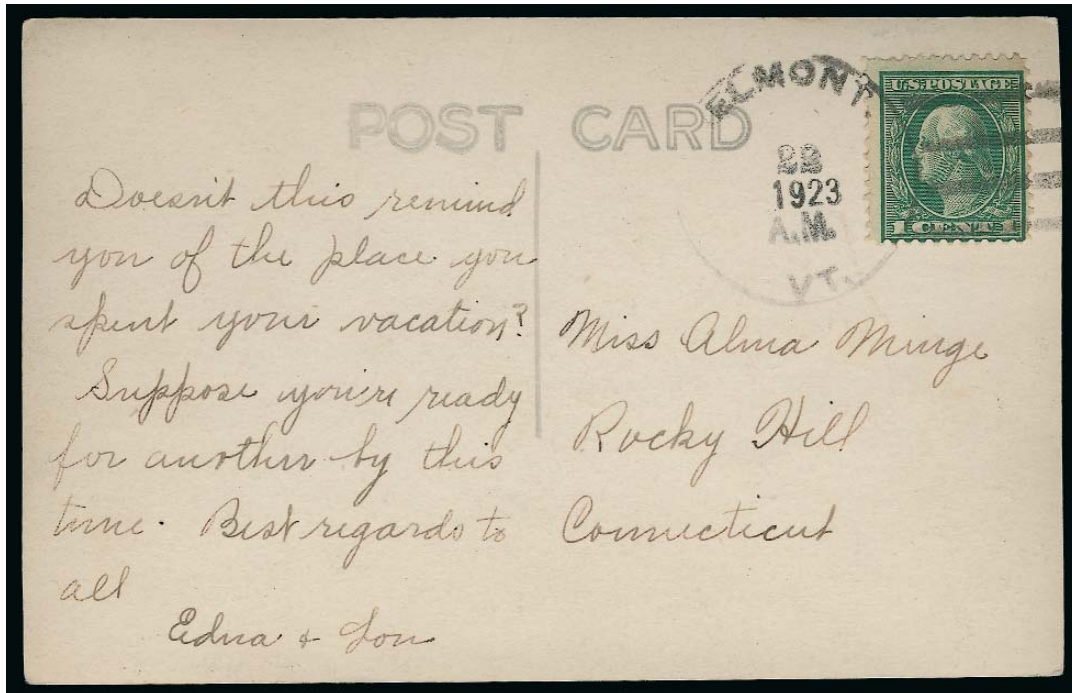 POST CARD
ELMONT
22
1923
A.M.
VT.
U.S. POSTAGE
1
Doesn't this remind
you of the place you
spent your vacation?
Suppose you're ready
for another by this
time. Best regards to
all
Edna +
Miss Alma Minge
Rocky Hill
Connecticut